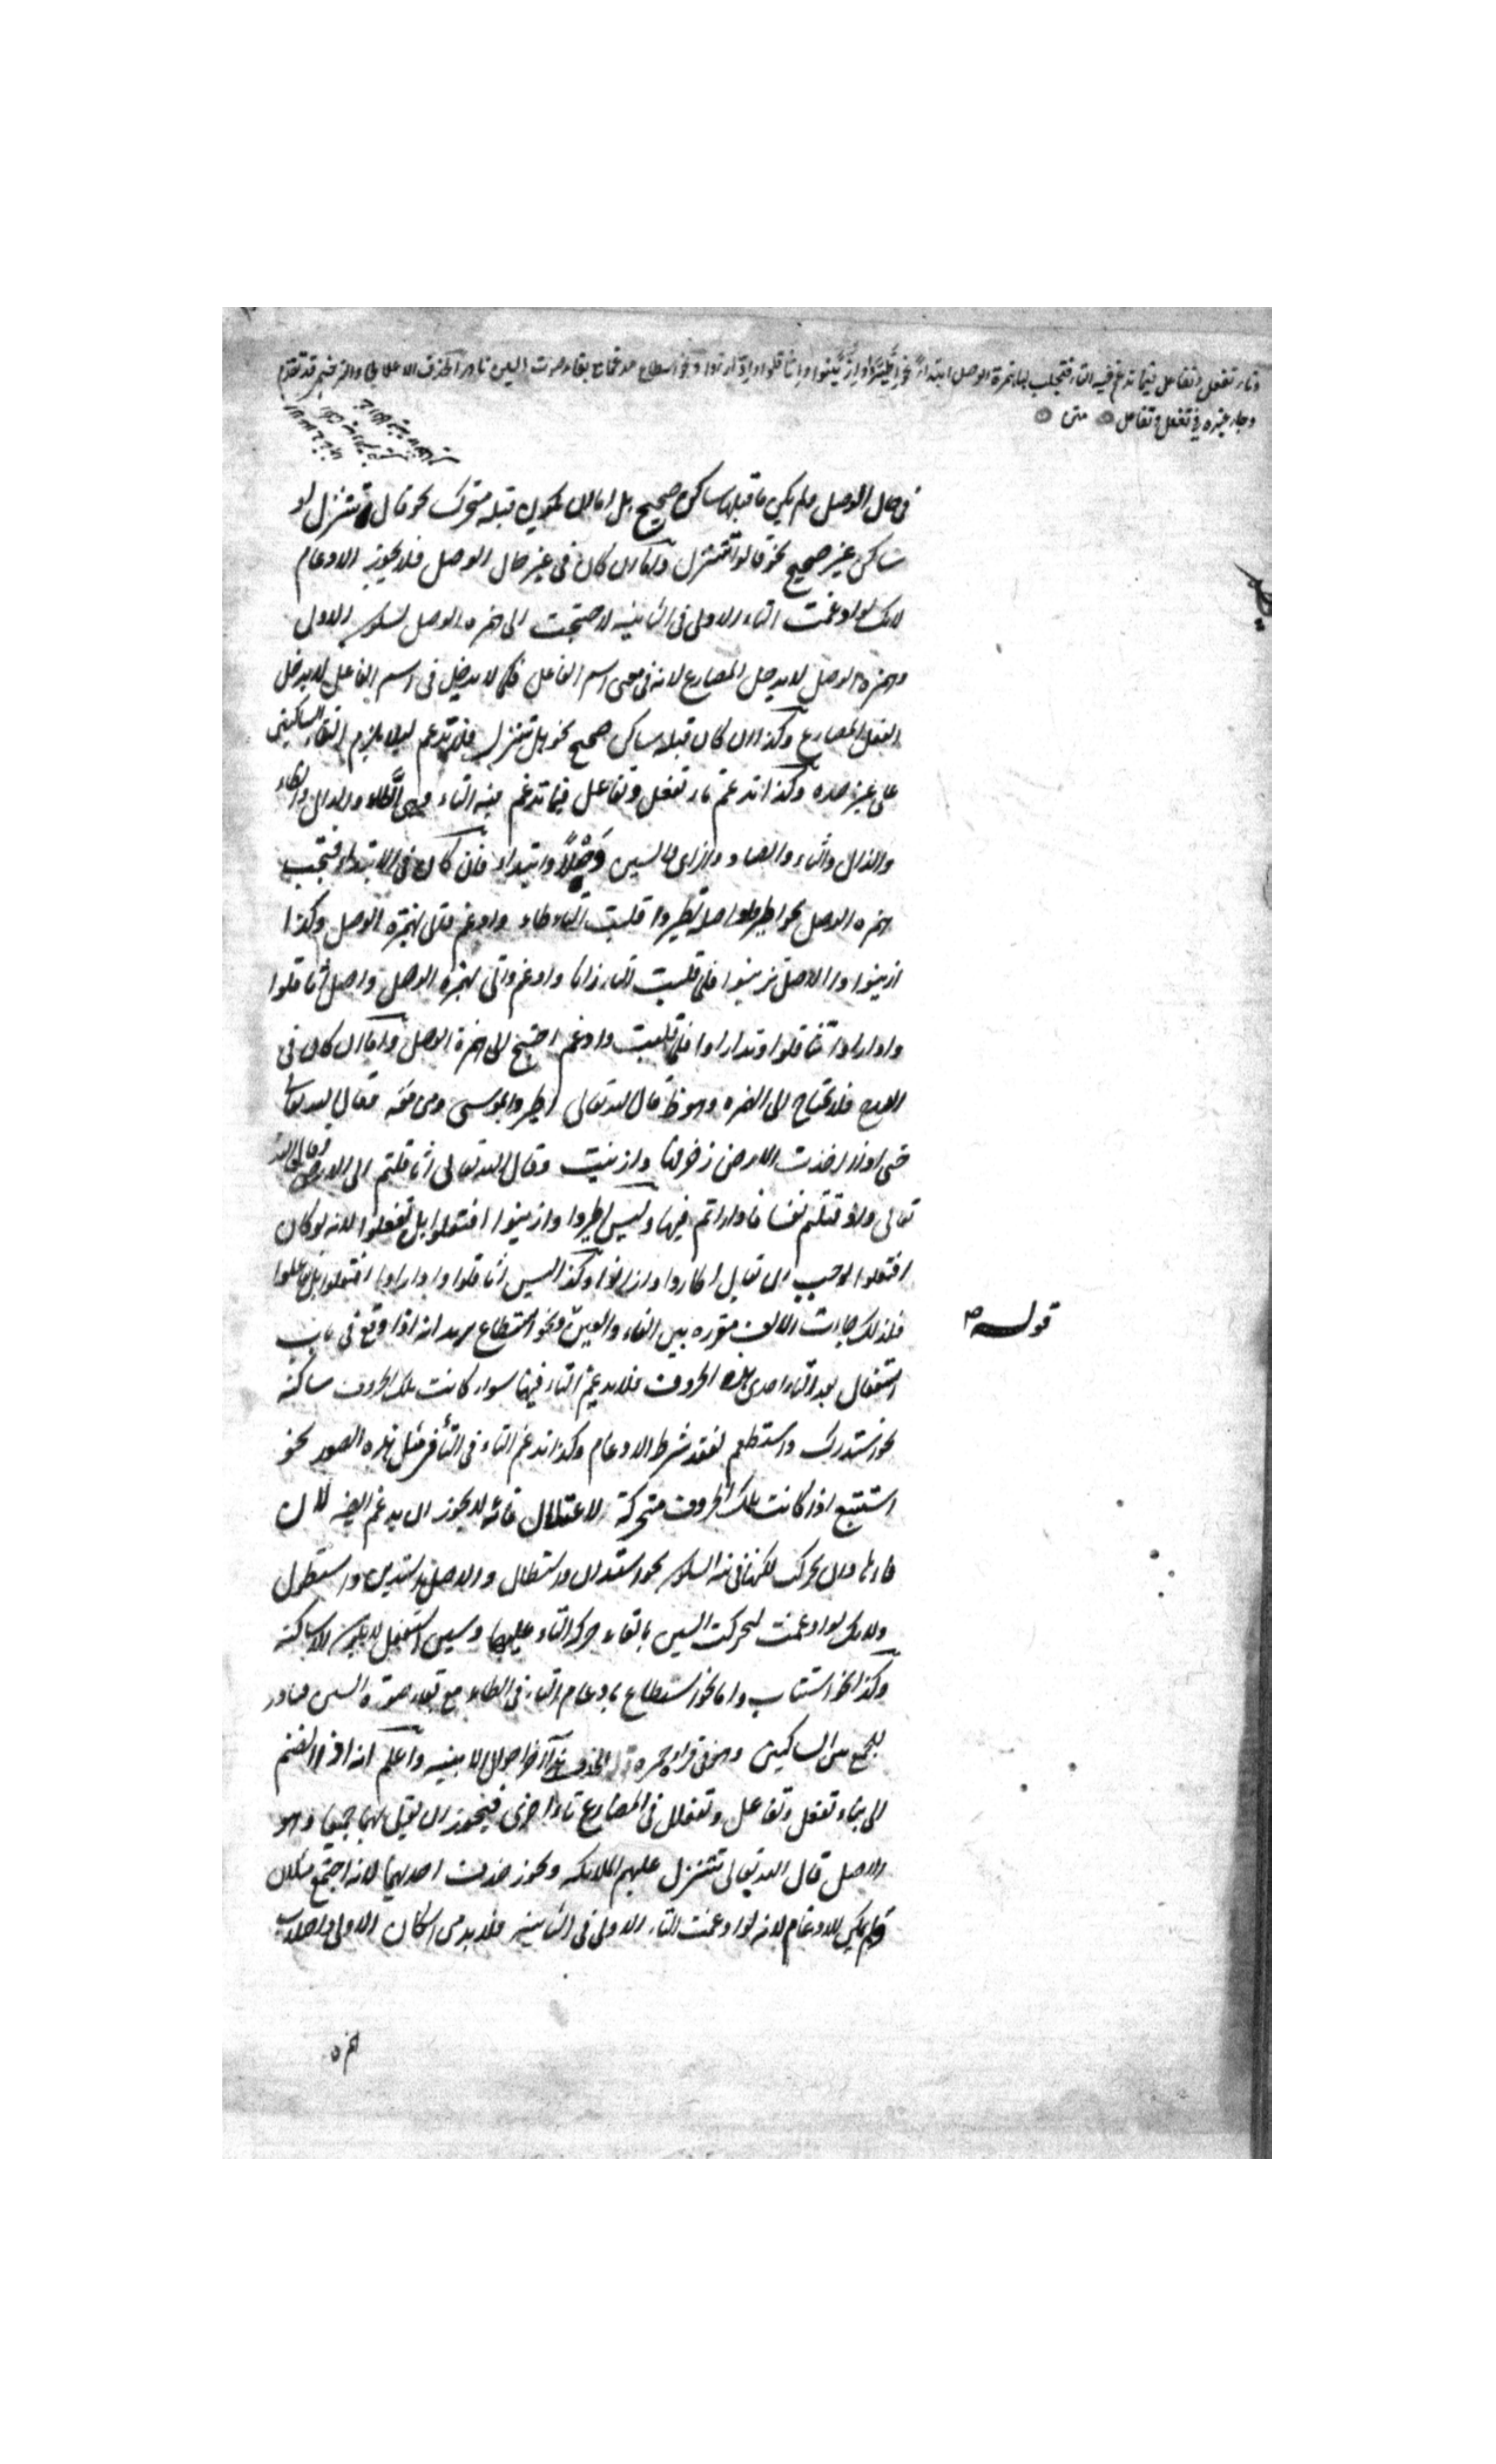 وتاء تفعل وتفاعل فيما تدغم فيه التاء فتجلب لها همزة الوصل ابتداءً نحو اطَّيَّروا وازَّيَّنوا واثاقلوا وادّارءوا ونحو اسطاع مدغما مع بقاء صوت السين نادر الحذف الاعلالي والترخيمي قد تقدم
وجاء غيره في تفعل وتفاعل متن
في حال الوصل ولم يكن ما قبلها ساكن صحيح بل اما ان يكون قبله متحرك نحو قال تتنزل او
ساكن غير صحيح نحو قالوا تتنزل واما ان كان في غير حال الوصل فلا يجوز الادغام
لانك لو ادغمت التاء الاولى في الثانية لاحتجت الى همزه الوصل لسكون الاولى
وهمزه الوصل لا يدخل المضارع لانه في معنى اسم الفاعل فكما لا يدخل في اسم الفاعل لا يدخل
الفعل المضارع وكذا ان كان قبله ساكن صحيح نحو هل تتنزل فلا تدغم لئلا يلزم التقاء الساكنين
على غير حده وكذا تدغم تاء تفعل وتفاعل فيما تدغم فيه التاء وهي الطاء والدال والظاء
والذال والثاء والصاد والزاى والسين وَصْلاً وابتداء فان كان في الابتداء فتجب
همزه الوصل نحو اطيروا اصله تطيروا قلبت التاء طاء وادغم فاتى بهمزة الوصل وكذا
ازينوا والاصل تزينوا فلما قلبت التاء زايا وادغم واتى بهمزه الوصل واصل اثاقلوا
وادارءوا تثاقلوا وتدارءوا فلما قلبت وادغم احتيج الى همزة الوصل واما ان كان في
الدرج فلا تحتاج الى الهمزه وهو ظ قال الله تعالى اطيروا بموسى ومن معه وقال الله تعالى
حتى اذا اخذت الارض زخرفها وازينت وقال الله تعالى اثاقلتم الى الارض وقال الله
تعالى واذ قتلتم نفسا فاداراتم فيها وليس اطيروا وازينوا افتعلوا بل تفعلوا لانه لو كان
افتعلوا لوجب ان تقابل اطاروا وازانوا وكذا ليس اثاقلوا وادارءوا افتعلوا بل تفاعلوا
قوله
فلذلك جاءت الالف بين الفاء والعين ونحو اسطاع يريد انه اذا وقع في باب
استفعال بعد التاء احدى هذه الحروف فلا يدغم التاء فيها سواء كانت تلك الحروف ساكنه
نحو استدرك واستطعم لفقد شرط الادغام وكذا تدغم التاء في التاء في مثل هذه الصور نحو
استتبع اذا كانت تلك الحروف متحركة للاعتلال فانه لا يجوز ان يدغم ايضه لان
فاءها وان تحركت لكنها في نية السكون نحو استدان واستطال والاصل استدين واستطول
ولانك لو ادغمت لتحركت السين بالقاء حركه التاء عليها وسين استفعل لا يكون الا ساكنه
وكذا نحو استتاب واما نحو اسطاع بادغام التاء في الطاء مع بقاء صوة السين فنادر
للجمع بين الساكنين وهو في قراءة حمزه الحذف واعلم انه اذا انضم
الى بناء تفعل وتفاعل وتفعلل في المضارع تاء اخرى فيجوز ان يقبل بهما جميعا وهو
الاصل قال الله تعالى تتنزل عليهم الملائكه ويجوز حذف احديهما لانه اجتمع مثلان
ولم يمكن الادغام لانه لو ادغمت التاء الاولى في الثانية فلا بد من اسكان الاولى واجلاب
همزه